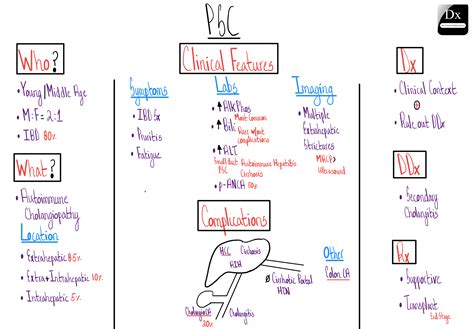 PbC
Dx
Who?
• Young/Middle Age
• M:F = 2:1
• IBD 80%
What?
• Autoimmune
Cholangiopathy
Location
• Extrahepatic 85%
• Extra+Intrahepatic 10%
• Intrahepatic 5%
Clinical Features
Symptoms
• IBD Sx
• Pruritis
• Fatigue
Labs
• ↑ Alk Phos
Most Common
• ↑ Bili
Rare most
complications
• ↑ ALT
Small Duct PSC
Autoimmune Hepatitis
Cirrhosis
• p-ANCA
Imaging
• Multiple
Extrahepatic
Strictures
MRCP>
Ultrasound
Complications
HCC
Cirrhosis
AIH
Cirrhotic Portal
HTN
CholangioCA
20%
Cholangitis
Other
Colon CA
Dx
• Clinical Context
+
• Rule out DDx
DDx
• Secondary
Cholangitis
Rx
• Supportive
• Transplant
End Stage